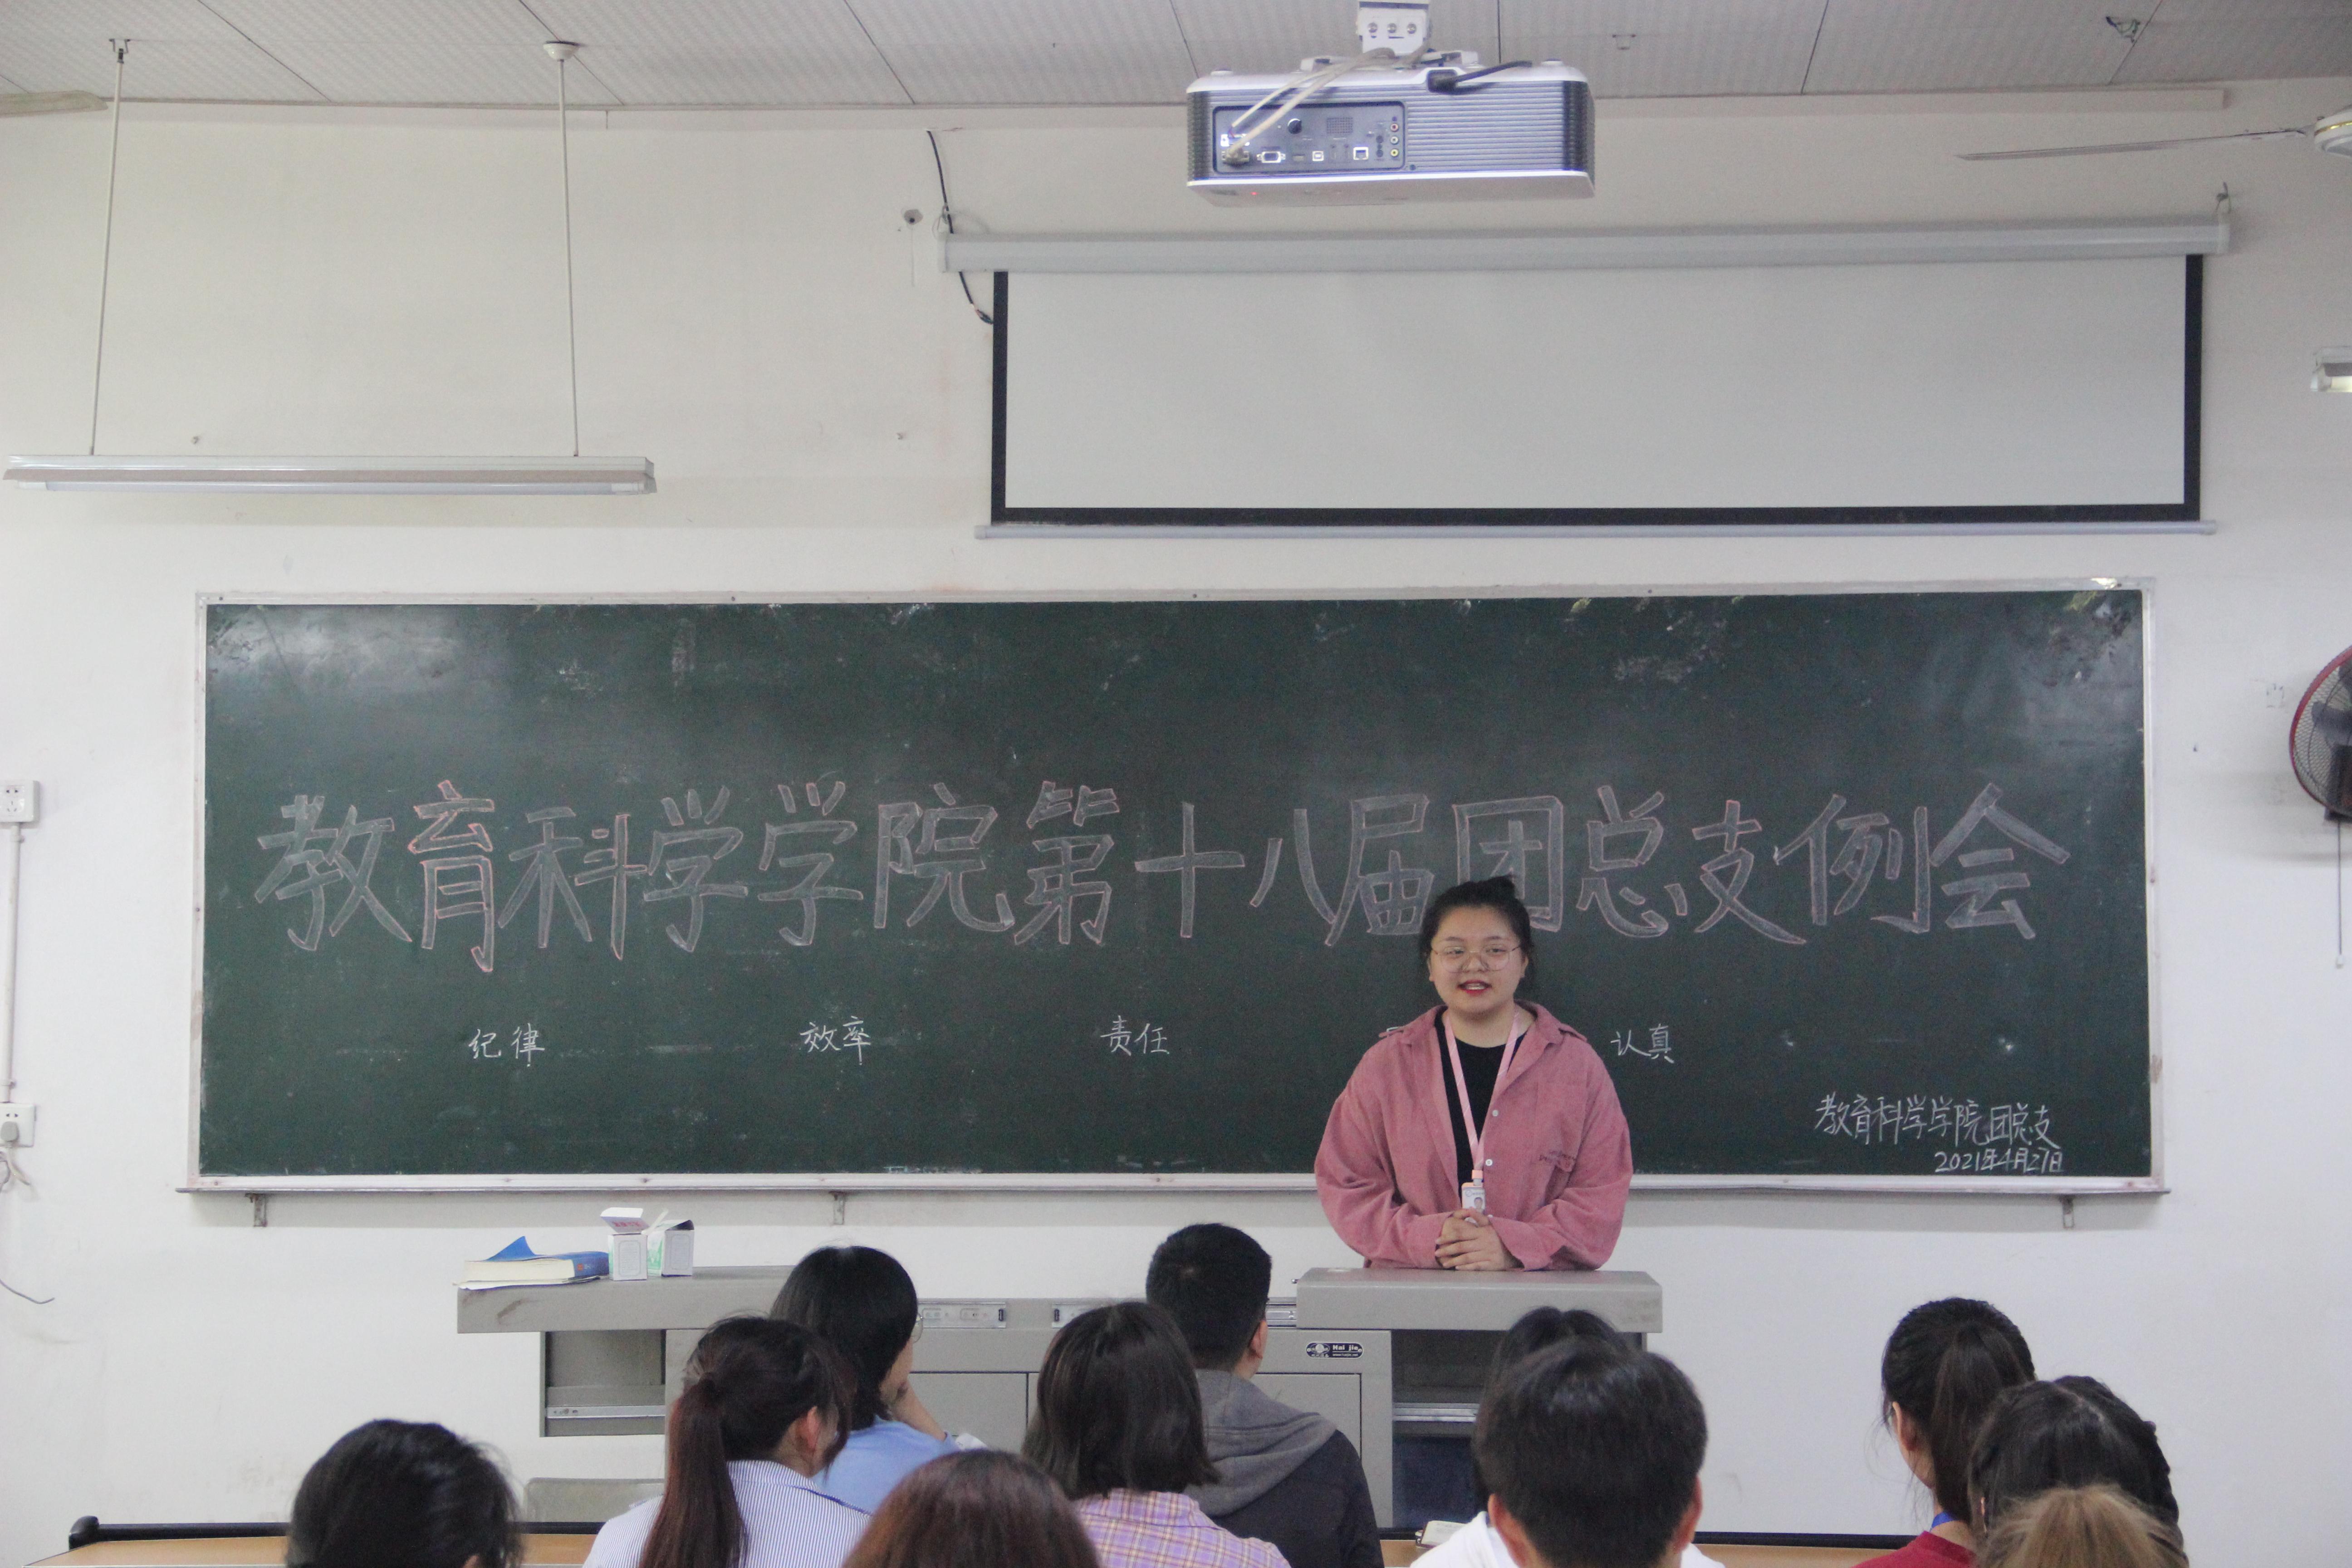 教育科学学院第十八届团总支例会
纪律 效率 责任 认真
教育科学学院团总支
2021年4月27日
Hai jia